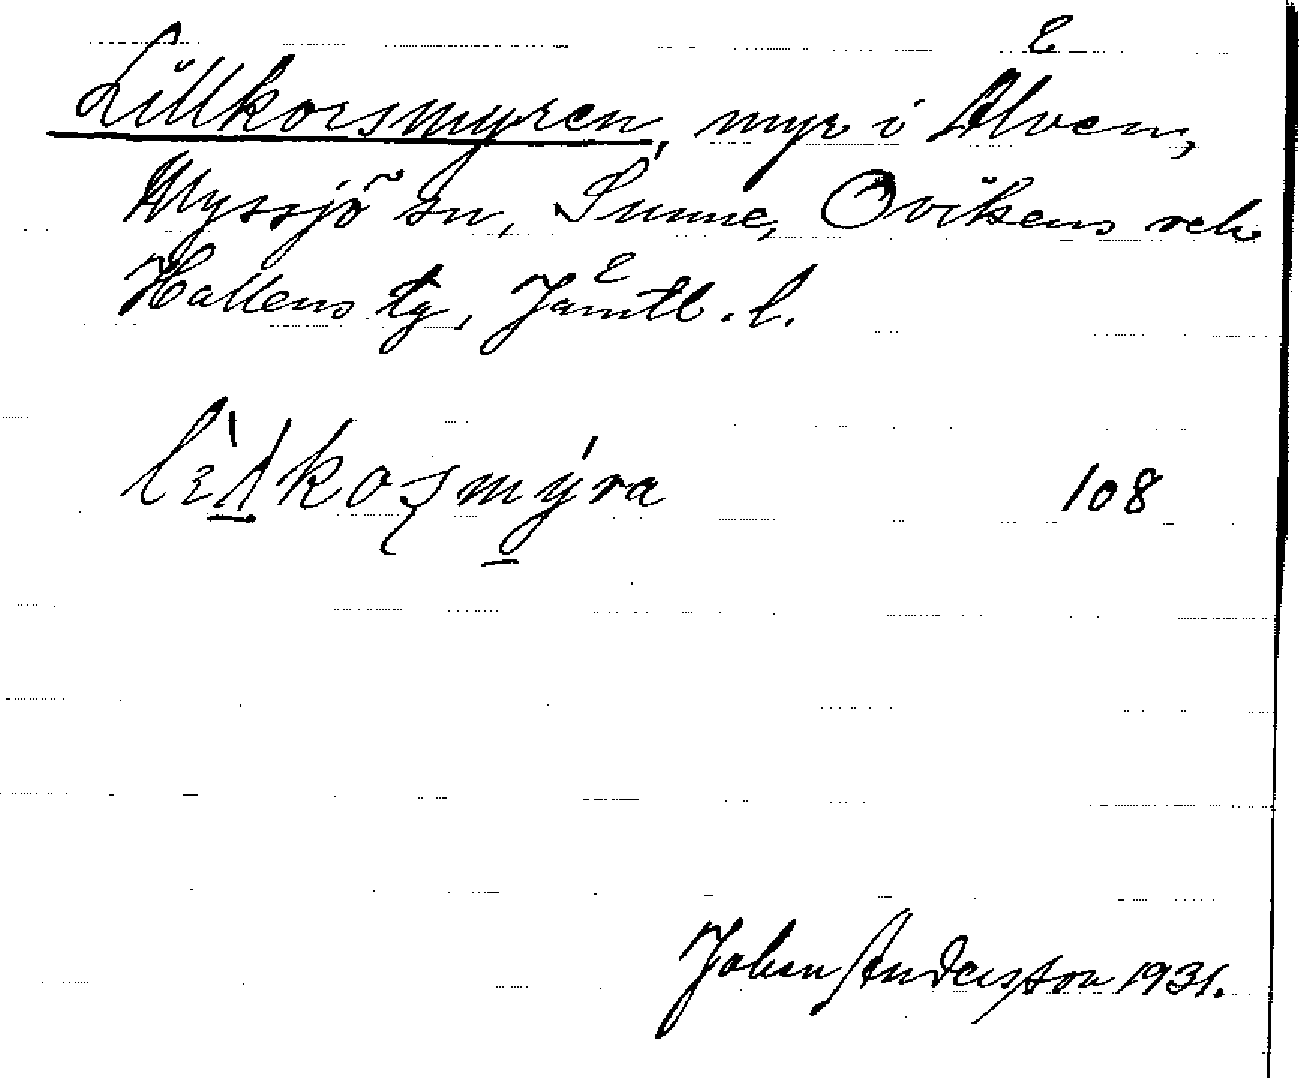 Lillkorsmyren, myr i Älven,
Myssjö sn, Sunne, Ovikens och
Hallens tg, Jämtl. l.
108
Johan Andersson 1931.